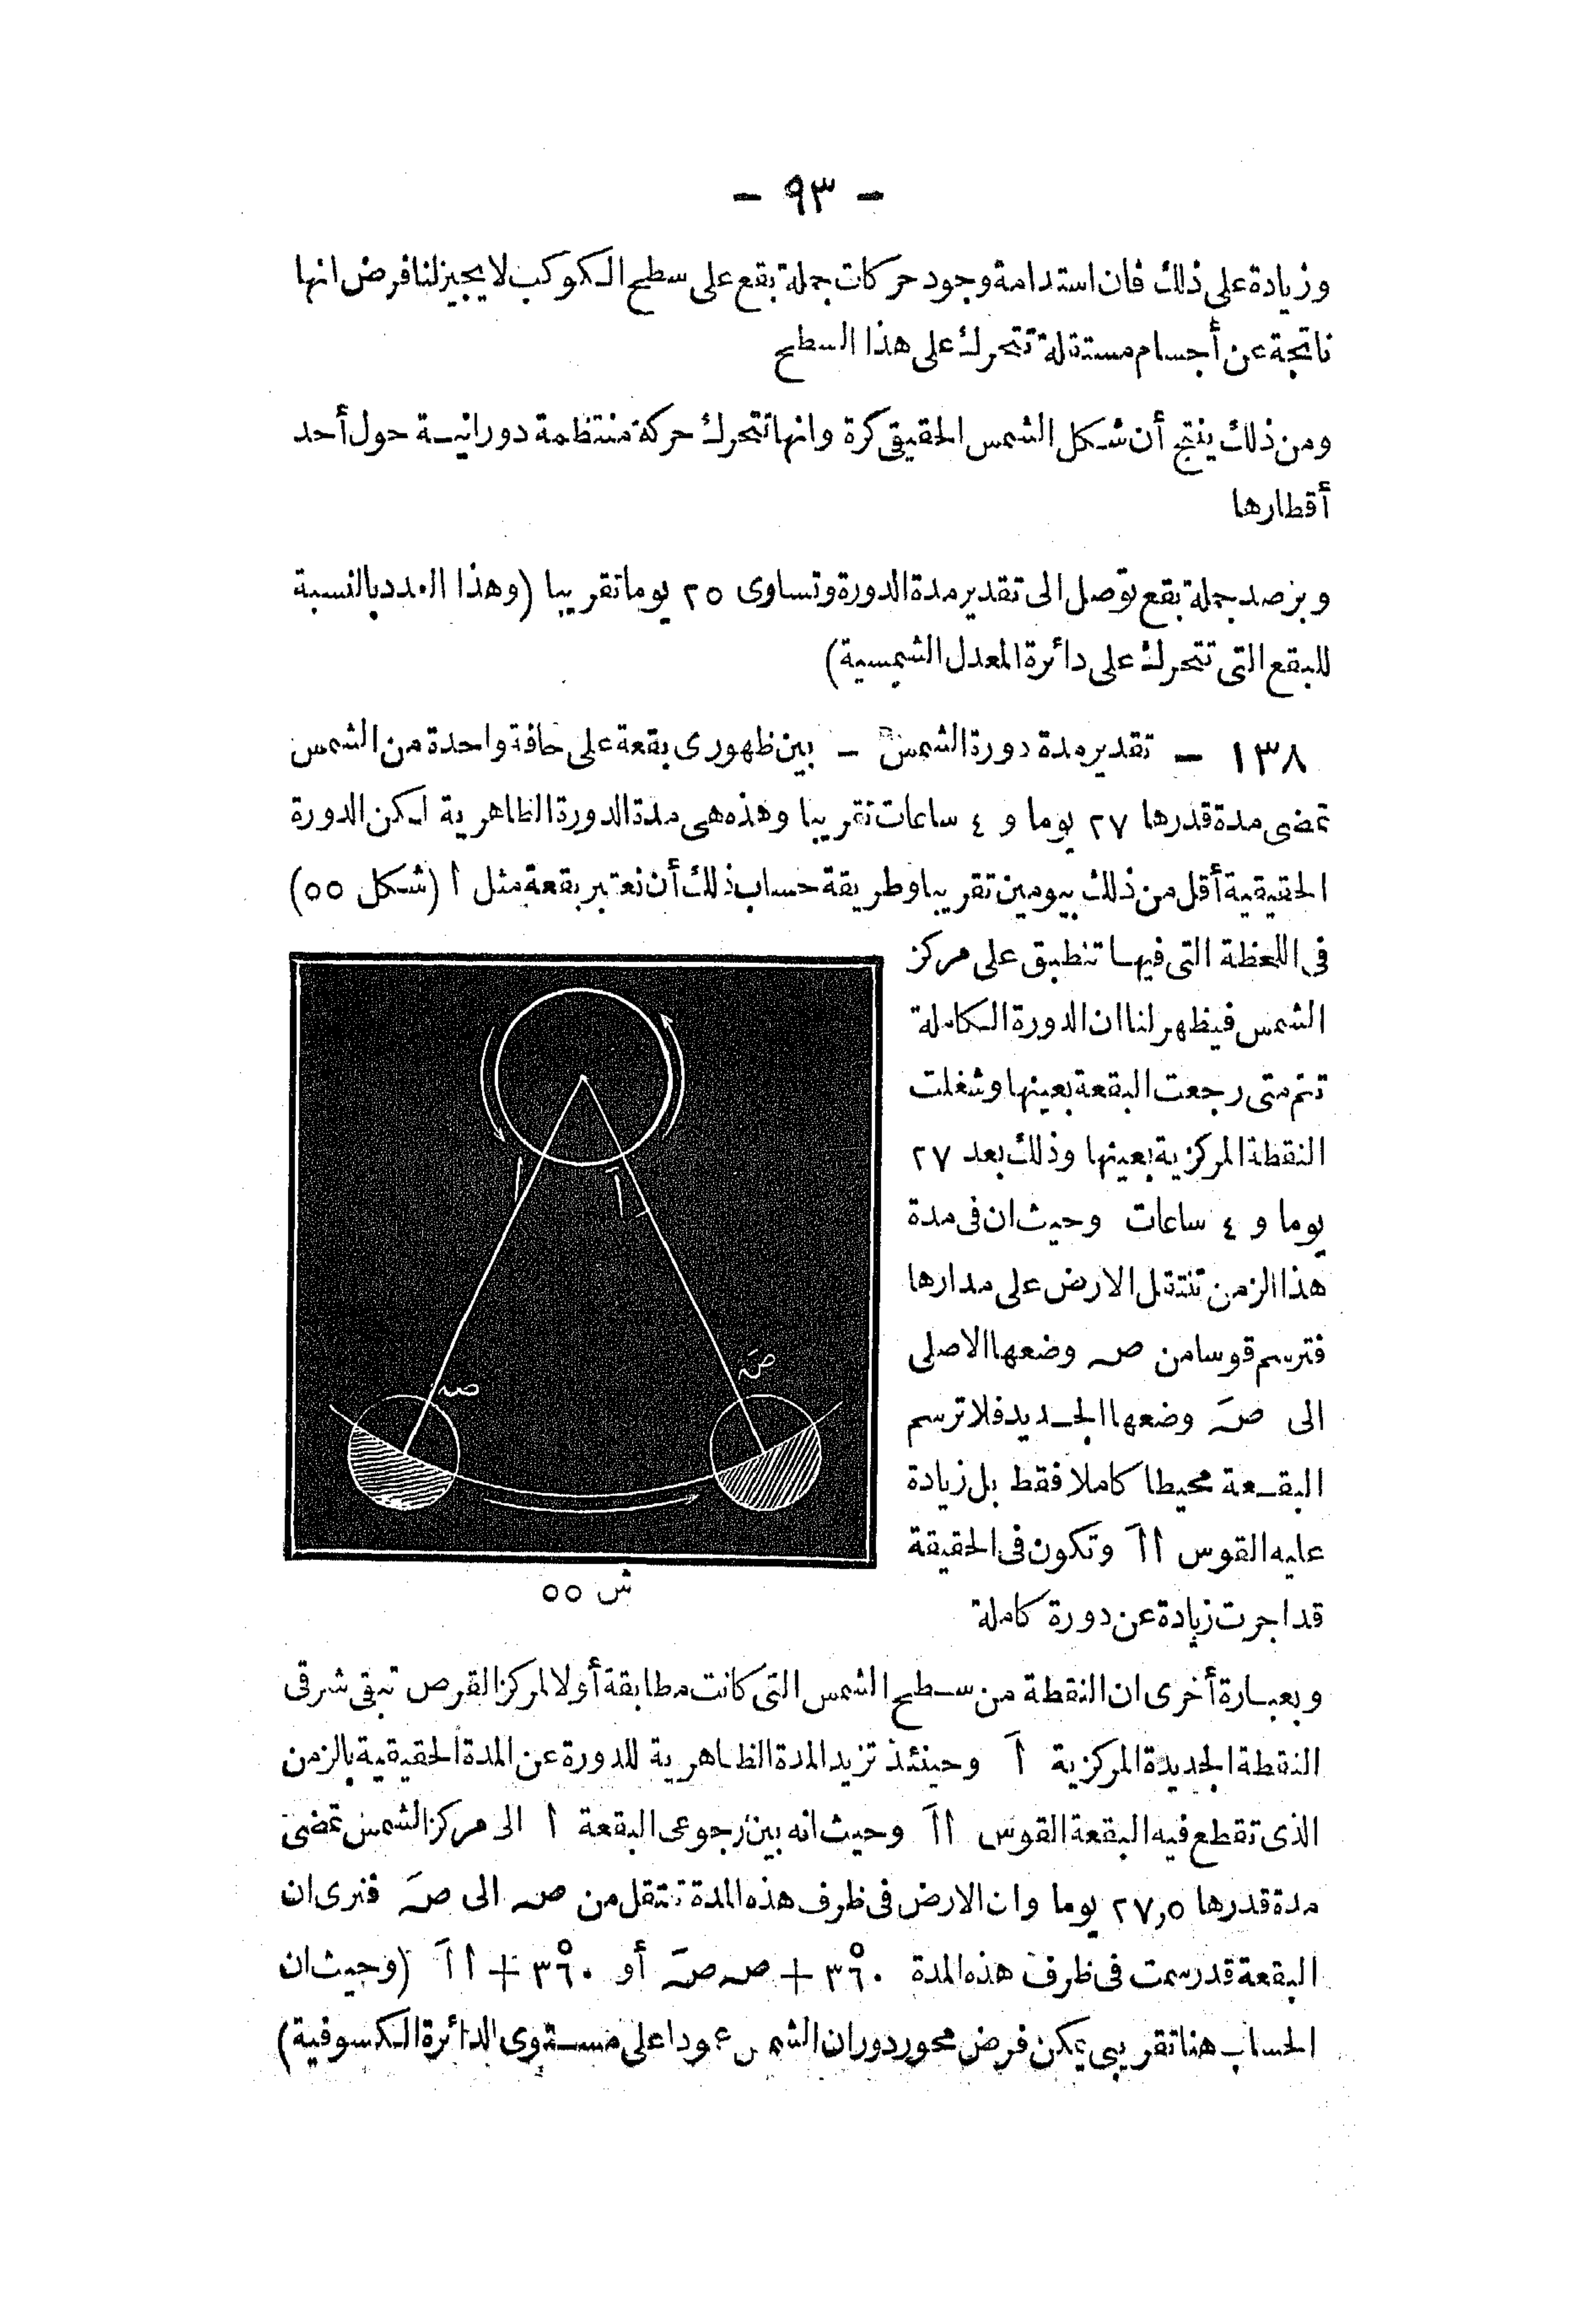 - ٩٣ -
وزيادة على ذلك فان استدامة وجود حركات جملة بقع على سطح الكوكب لا يجيز لنا فرض انها
ناتجة عن أجسام مستقلة تتحرك على هذا السطح
ومن ذلك ينتج أن شكل الشمس الحقيقى كرة وانها تتحرك حركة منتظمة دورانية حول أحد
أقطارها
وبرصد جملة بقع توصل الى تقدير مدة الدورة وتساوى ٢٥ يوما تقريبا (وهذا العدد بالنسبة
للبقع التى تتحرك على دائرة المعدل الشمسية)
١٣٨ - تقدير مدة دورة الشمس - بين ظهورى بقعة على حافة واحدة من الشمس
تمضى مدة قدرها ٢٧ يوما و ٤ ساعات تقريبا وهذه هى مدة الدورة الظاهرية لكن الدورة
الحقيقية أقل من ذلك بيومين تقريبا وطريقة حساب ذلك أن نعتبر بقعة مثل ا (شكل ٥٥)
فى اللحظة التى فيها تنطبق على مركز
الشمس فيظهر لنا ان الدورة الكاملة
تتم متى رجعت البقعة بعينها وشغلت
النقطة المركزية بعينها وذلك بعد ٢٧
يوما و ٤ ساعات وحيث ان فى مدة
هذا الزمن تنتقل الارض على مدارها
فترسم قوسا من صـ وضعها الاصلى
الى صـَ وضعها الجديد فلا ترسم
البقعة محيطا كاملا فقط بل زيادة
عليه القوس ااَ وتكون فى الحقيقة
قد اجرت زيادة عن دورة كاملة
ا
اَ
صـ
صـَ
ش ٥٥
وبعبارة أخرى ان النقطة من سطح الشمس التى كانت مطابقة أولا لمركز القرص تبقى شرقى
النقطة الجديدة المركزية اَ وحينئذ تزيد المدة الظاهرية للدورة عن المدة الحقيقية بالزمن
الذى تقطع فيه البقعة القوس ااَ وحيث انه بين رجوعى البقعة ا الى مركز الشمس تمضى
مدة قدرها ٢٧,٥ يوما وان الارض فى ظرف هذه المدة تنتقل من صـ الى صـَ فنرى ان
البقعة قد رسمت فى ظرف هذه المدة ٣٦٠° + صـ صـَ أو ٣٦٠° + ااَ (وحيث ان
الحساب هنا تقريبى يمكن فرض محور دوران الشمس عمودا على مستوى الدائرة الكسوفية)